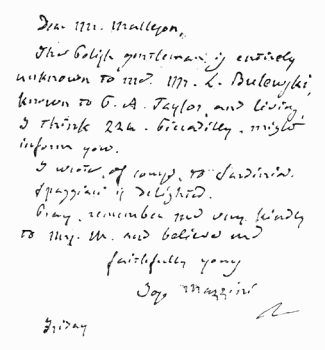 Dear Mr. Malleson,
This Polish gentleman is entirely
unknown to me. Mr. L. Bulewski,
known to P. A. Taylor and living,
I think 22A. Piccadilly, might
inform you.
I wrote, of course, to Sardinia.
Spaggiari is delighted.
Pray, remember me very kindly
to Mrs. M. and believe me
faithfully yours
Jos. Mazzini
Friday